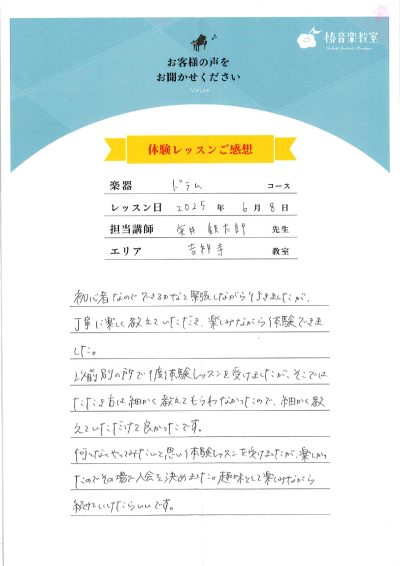 お客様の声を
お聞かせください
Voice
椿音楽教室
体験レッスンご感想
楽器 ドラム コース
レッスン日 2025 年 6 月 8 日
担当講師 鉄太郎 先生
エリア 吉祥寺 教室
初心者なのでできるかなと緊張しながら行きましたが、
丁寧に楽しく教えていただき、楽しみながら体験できま
した。
以前別の所で1度体験レッスンを受けましたが、そこでは
たたき方は細かく教えてもらわなかったので、細かく教
えていただけて良かったです。
何となくやってみたいと思い体験レッスンを受けましたが、楽しかっ
たのでその場で入会を決めました。趣味として楽しみながら
続けていけたらいいです。